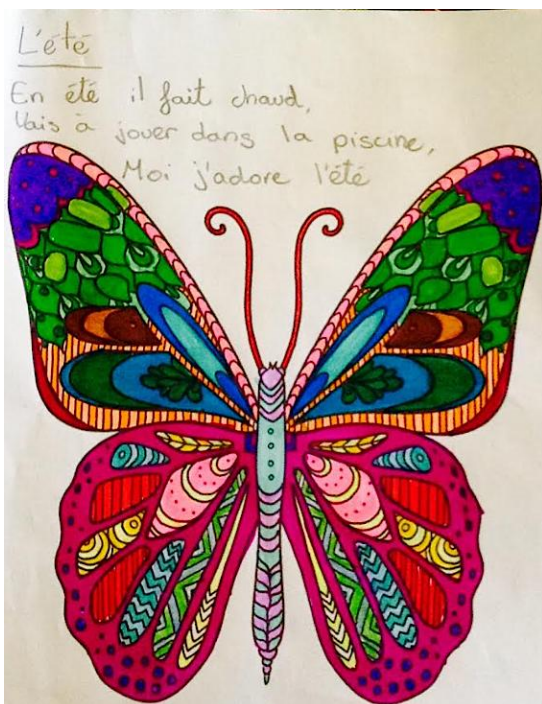 L'été
En été il fait chaud,
Vais à jouer dans la piscine,
Moi j'adore l'été